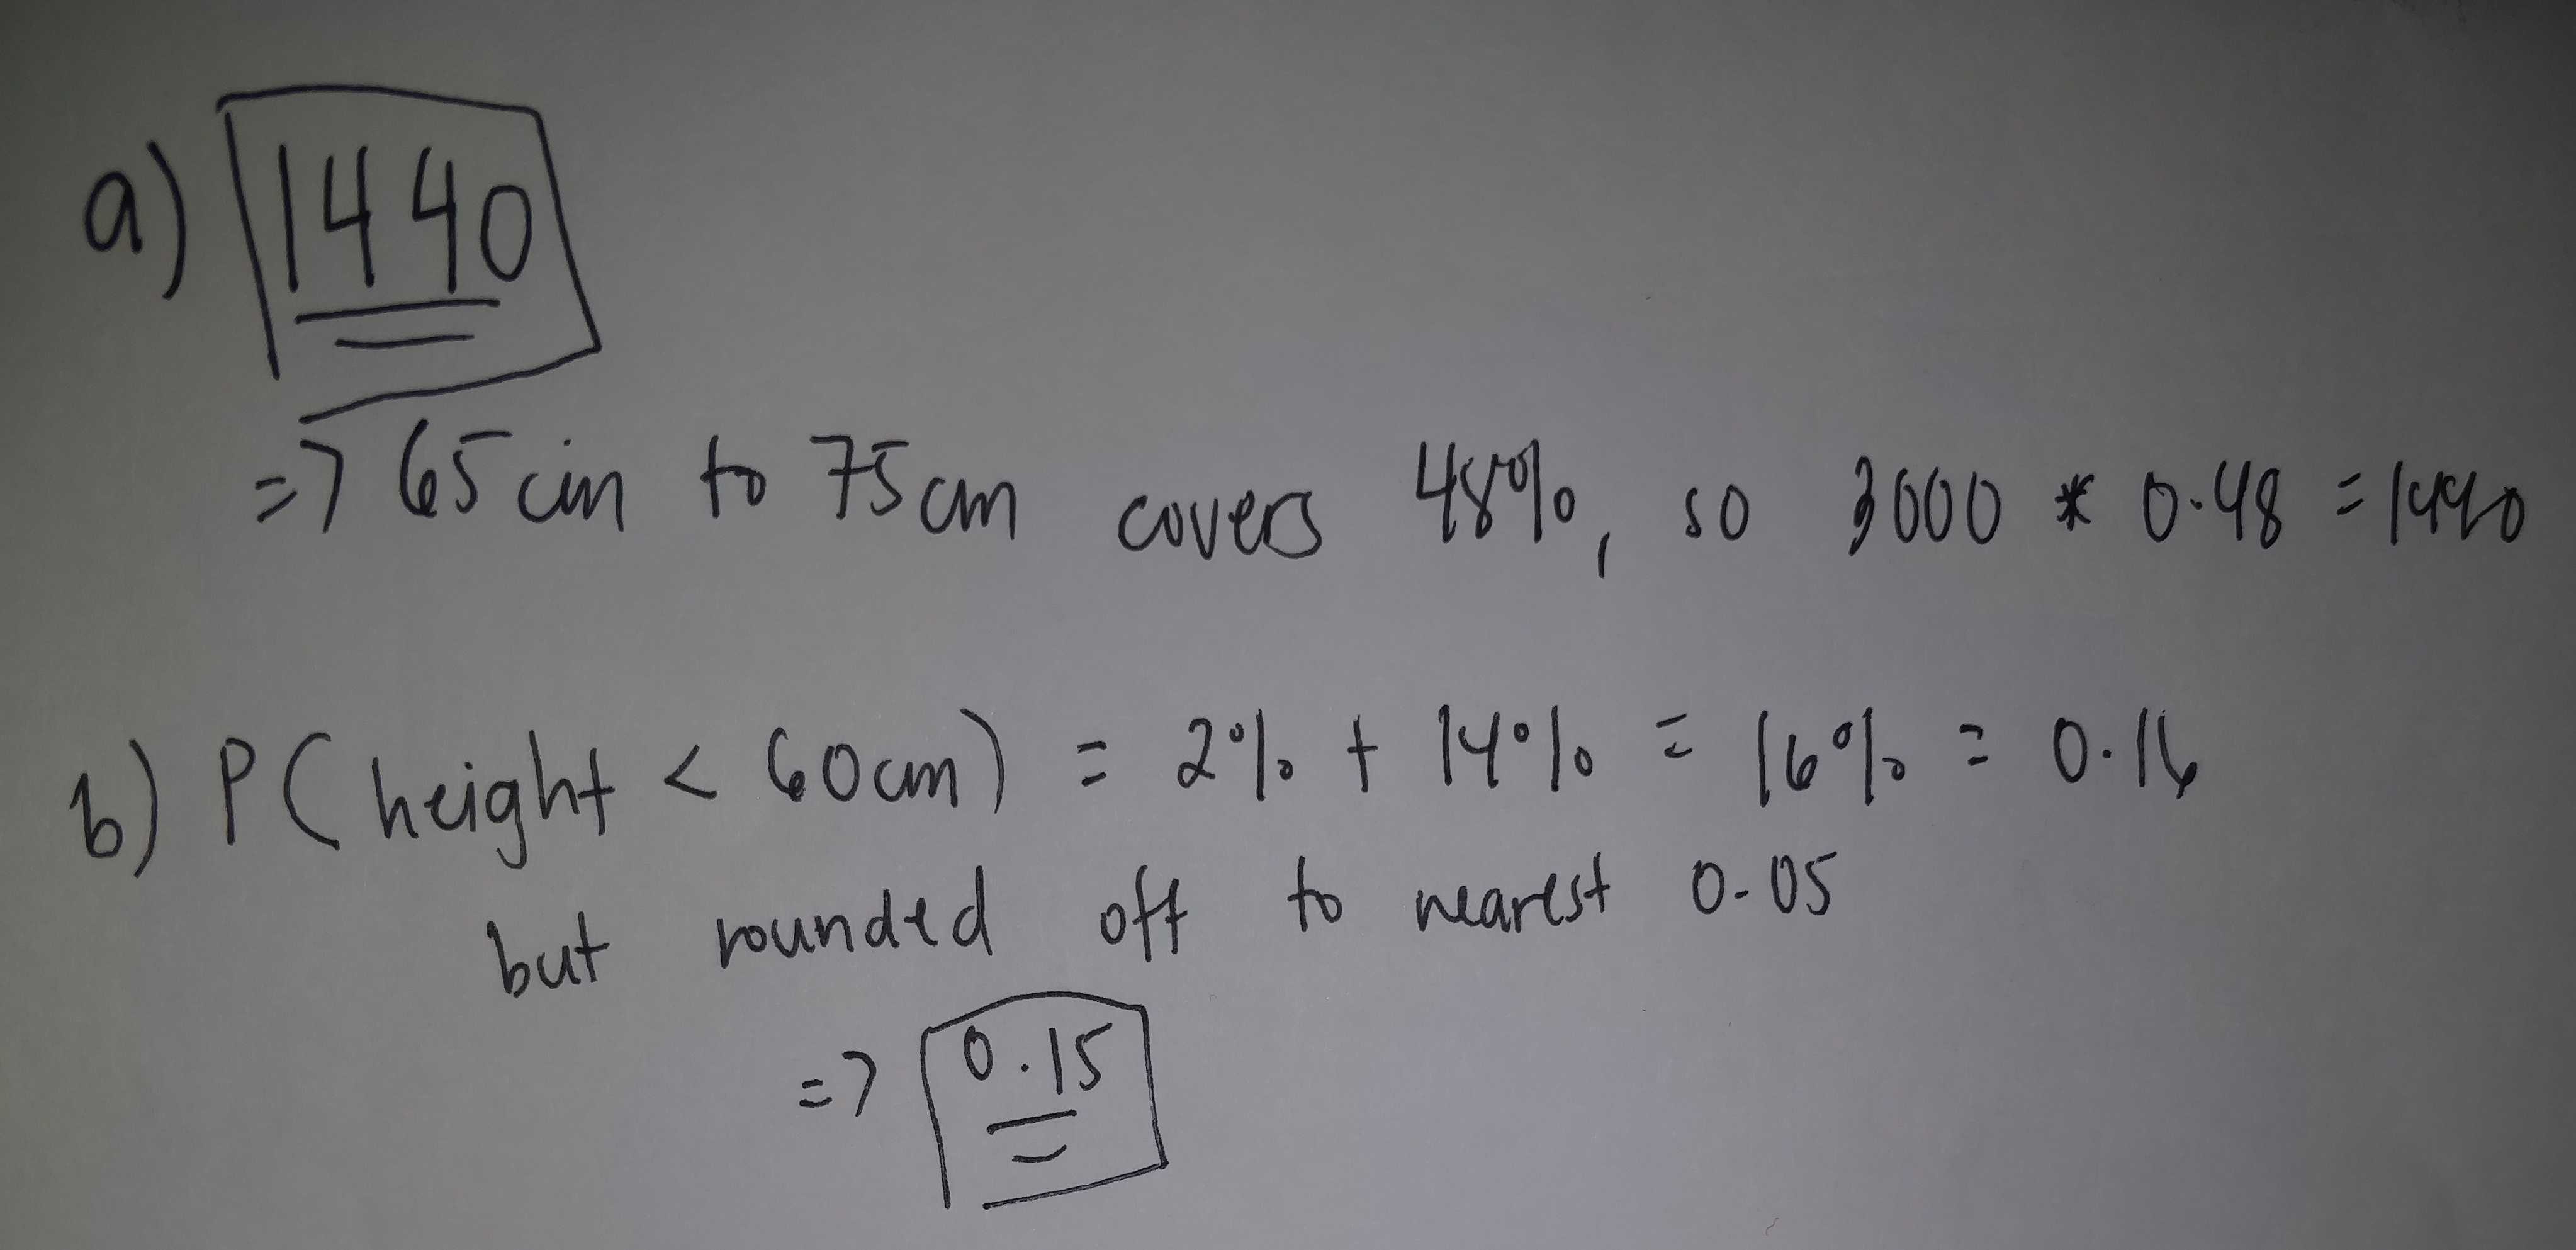 a) 1440
=> 65 cm to 75 cm covers 48%, so 3000 * 0.48 = 1440
b) P(height < 60cm) = 2% + 14% = 16% = 0.16
but rounded off to nearest 0.05
=> 0.15